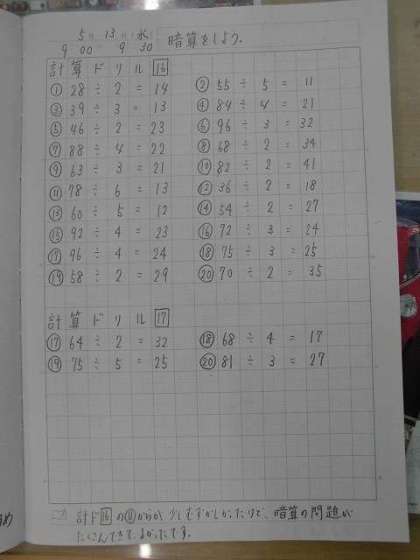 5月13日(水)
9:00 9:30 暗算をしよう。
計算ドリル16
① 28÷2=14 ② 55÷5=11
③ 39÷3=13 ④ 84÷4=21
⑤ 46÷2=23 ⑥ 96÷3=32
⑦ 88÷4=22 ⑧ 68÷2=34
⑨ 63÷3=21 ⑩ 82÷2=41
⑪ 78÷6=13 ⑫ 36÷2=18
⑬ 60÷5=12 ⑭ 54÷2=27
⑮ 92÷4=23 ⑯ 72÷3=24
⑰ 96÷4=24 ⑱ 75÷3=25
⑲ 58÷2=29 ⑳ 70÷2=35
計算ドリル17
⑰ 64÷2=32 ⑱ 68÷4=17
⑲ 75÷5=25 ⑳ 81÷3=27
計ド16の⑪からが少しむずかしかったけど、暗算の問題が
たくさんできてよかったです。